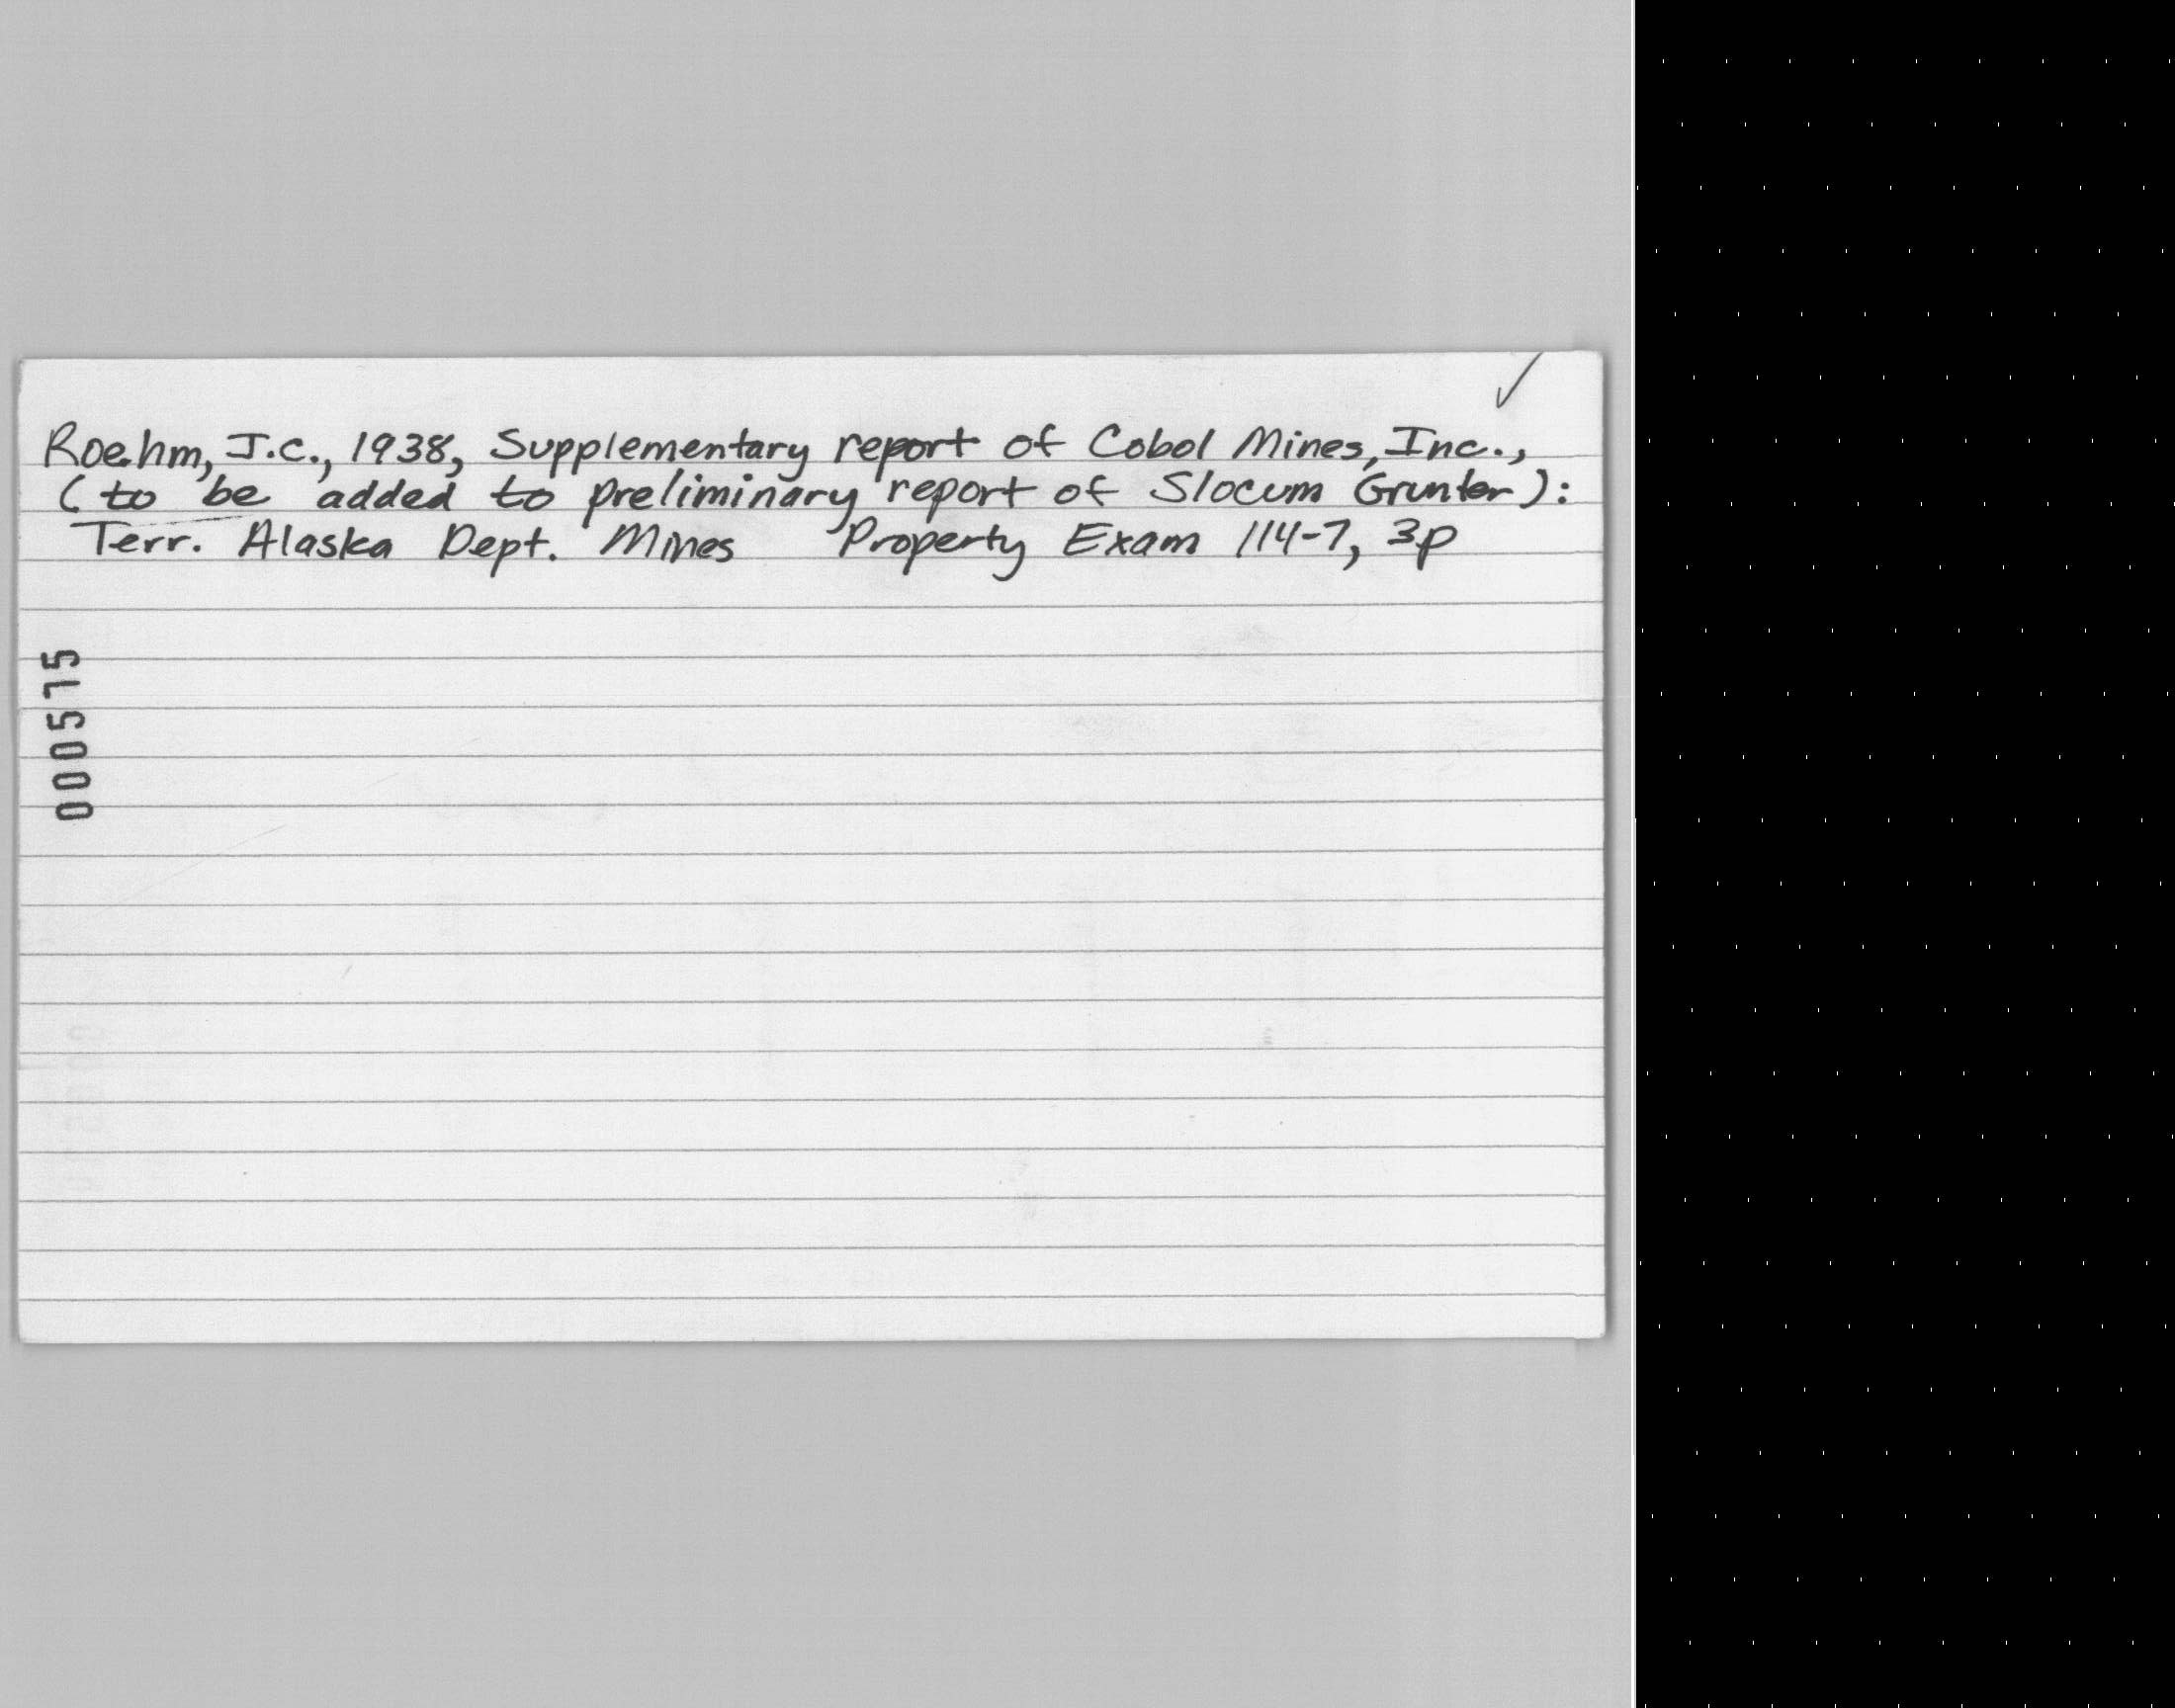 Roehm, J.C., 1938, Supplementary report of Cobol Mines, Inc.,
(to be added to preliminary report of Slocum Grunter):
Terr. Alaska Dept. Mines Property Exam 114-7, 3p
000575